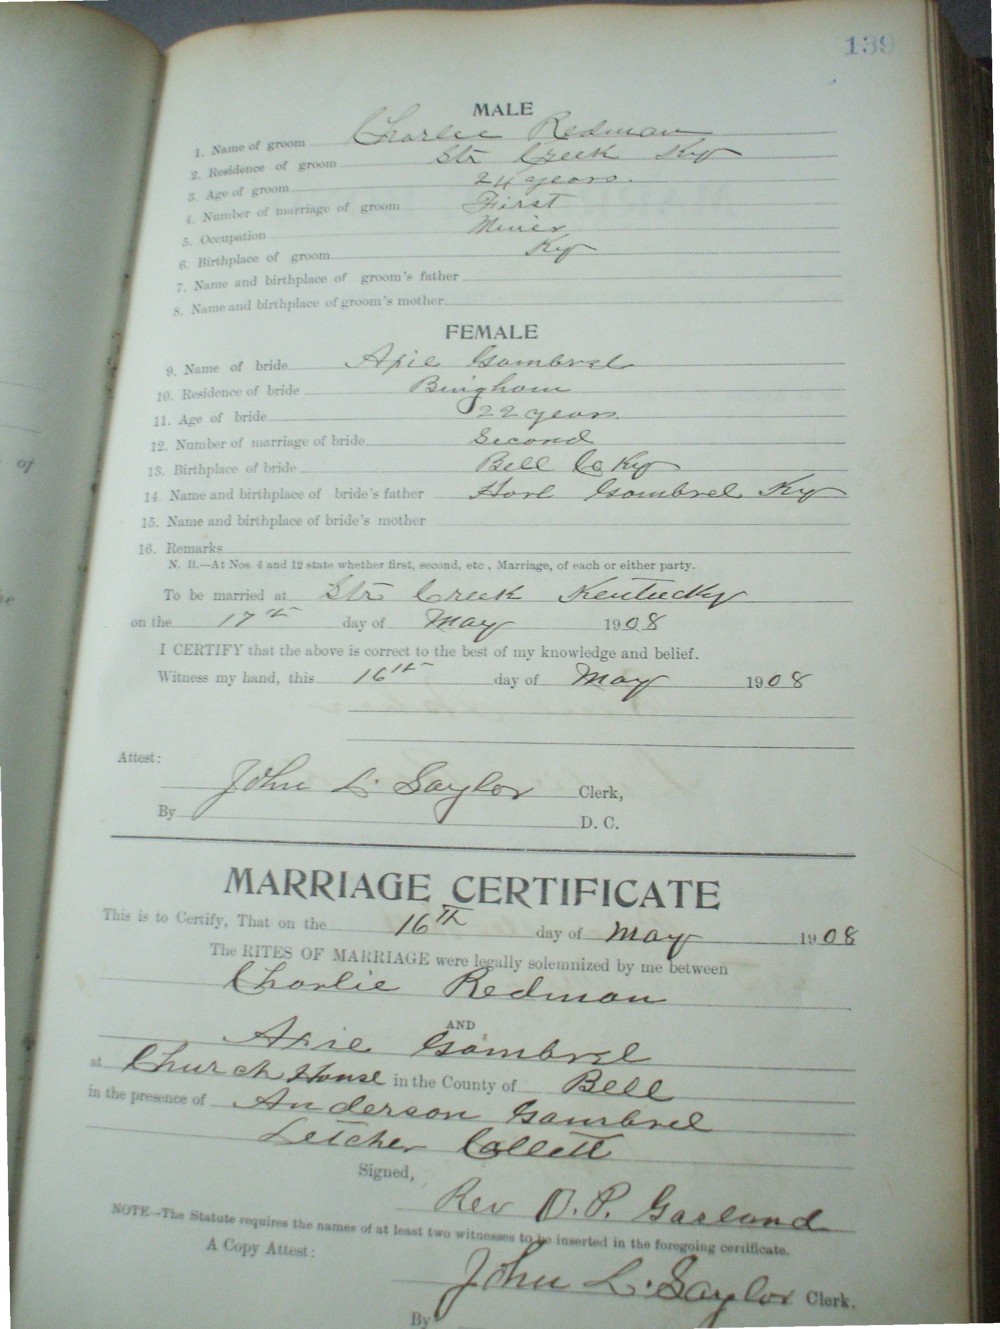 139
MALE
1. Name of groom Charlie Redman
2. Residence of groom Str Creek Ky
3. Age of groom 24 years.
4. Number of marriage of groom First
5. Occupation Miner
6. Birthplace of groom Ky
7. Name and birthplace of groom's father
8. Name and birthplace of groom's mother
FEMALE
9. Name of bride Gambrel
10. Residence of bride Bingham
11. Age of bride 22 years.
12. Number of marriage of bride Second
13. Birthplace of bride Bell Co Ky
14 Name and birthplace of bride's father Gambrel Ky
15. Name and birthplace of bride's mother
16. Remarks
N. B.—At Nos. 4 and 12 state whether first, second, etc, Marriage, of each or either party.
To be married at Str Creek Kentucky
on the 17th day of May 1908
I CERTIFY that the above is correct to the best of my knowledge and belief.
Witness my hand, this 16th day of May 1908
Attest:
John L. Saylor Clerk,
By D. C.
MARRIAGE CERTIFICATE
This is to Certify, That on the 16TH day of May 1908
The RITES OF MARRIAGE were legally solemnized by me between
Charlie Redman
AND
Gambrel
at Church House in the County of Bell
in the presence of Anderson Gambrel
Letcher Collett
Signed,
Rev D. P. Garland
NOTE—The Statute requires the names of at least two witnesses to be inserted in the foregoing certificate.
A Copy Attest:
John L. Saylor Clerk.
By
of